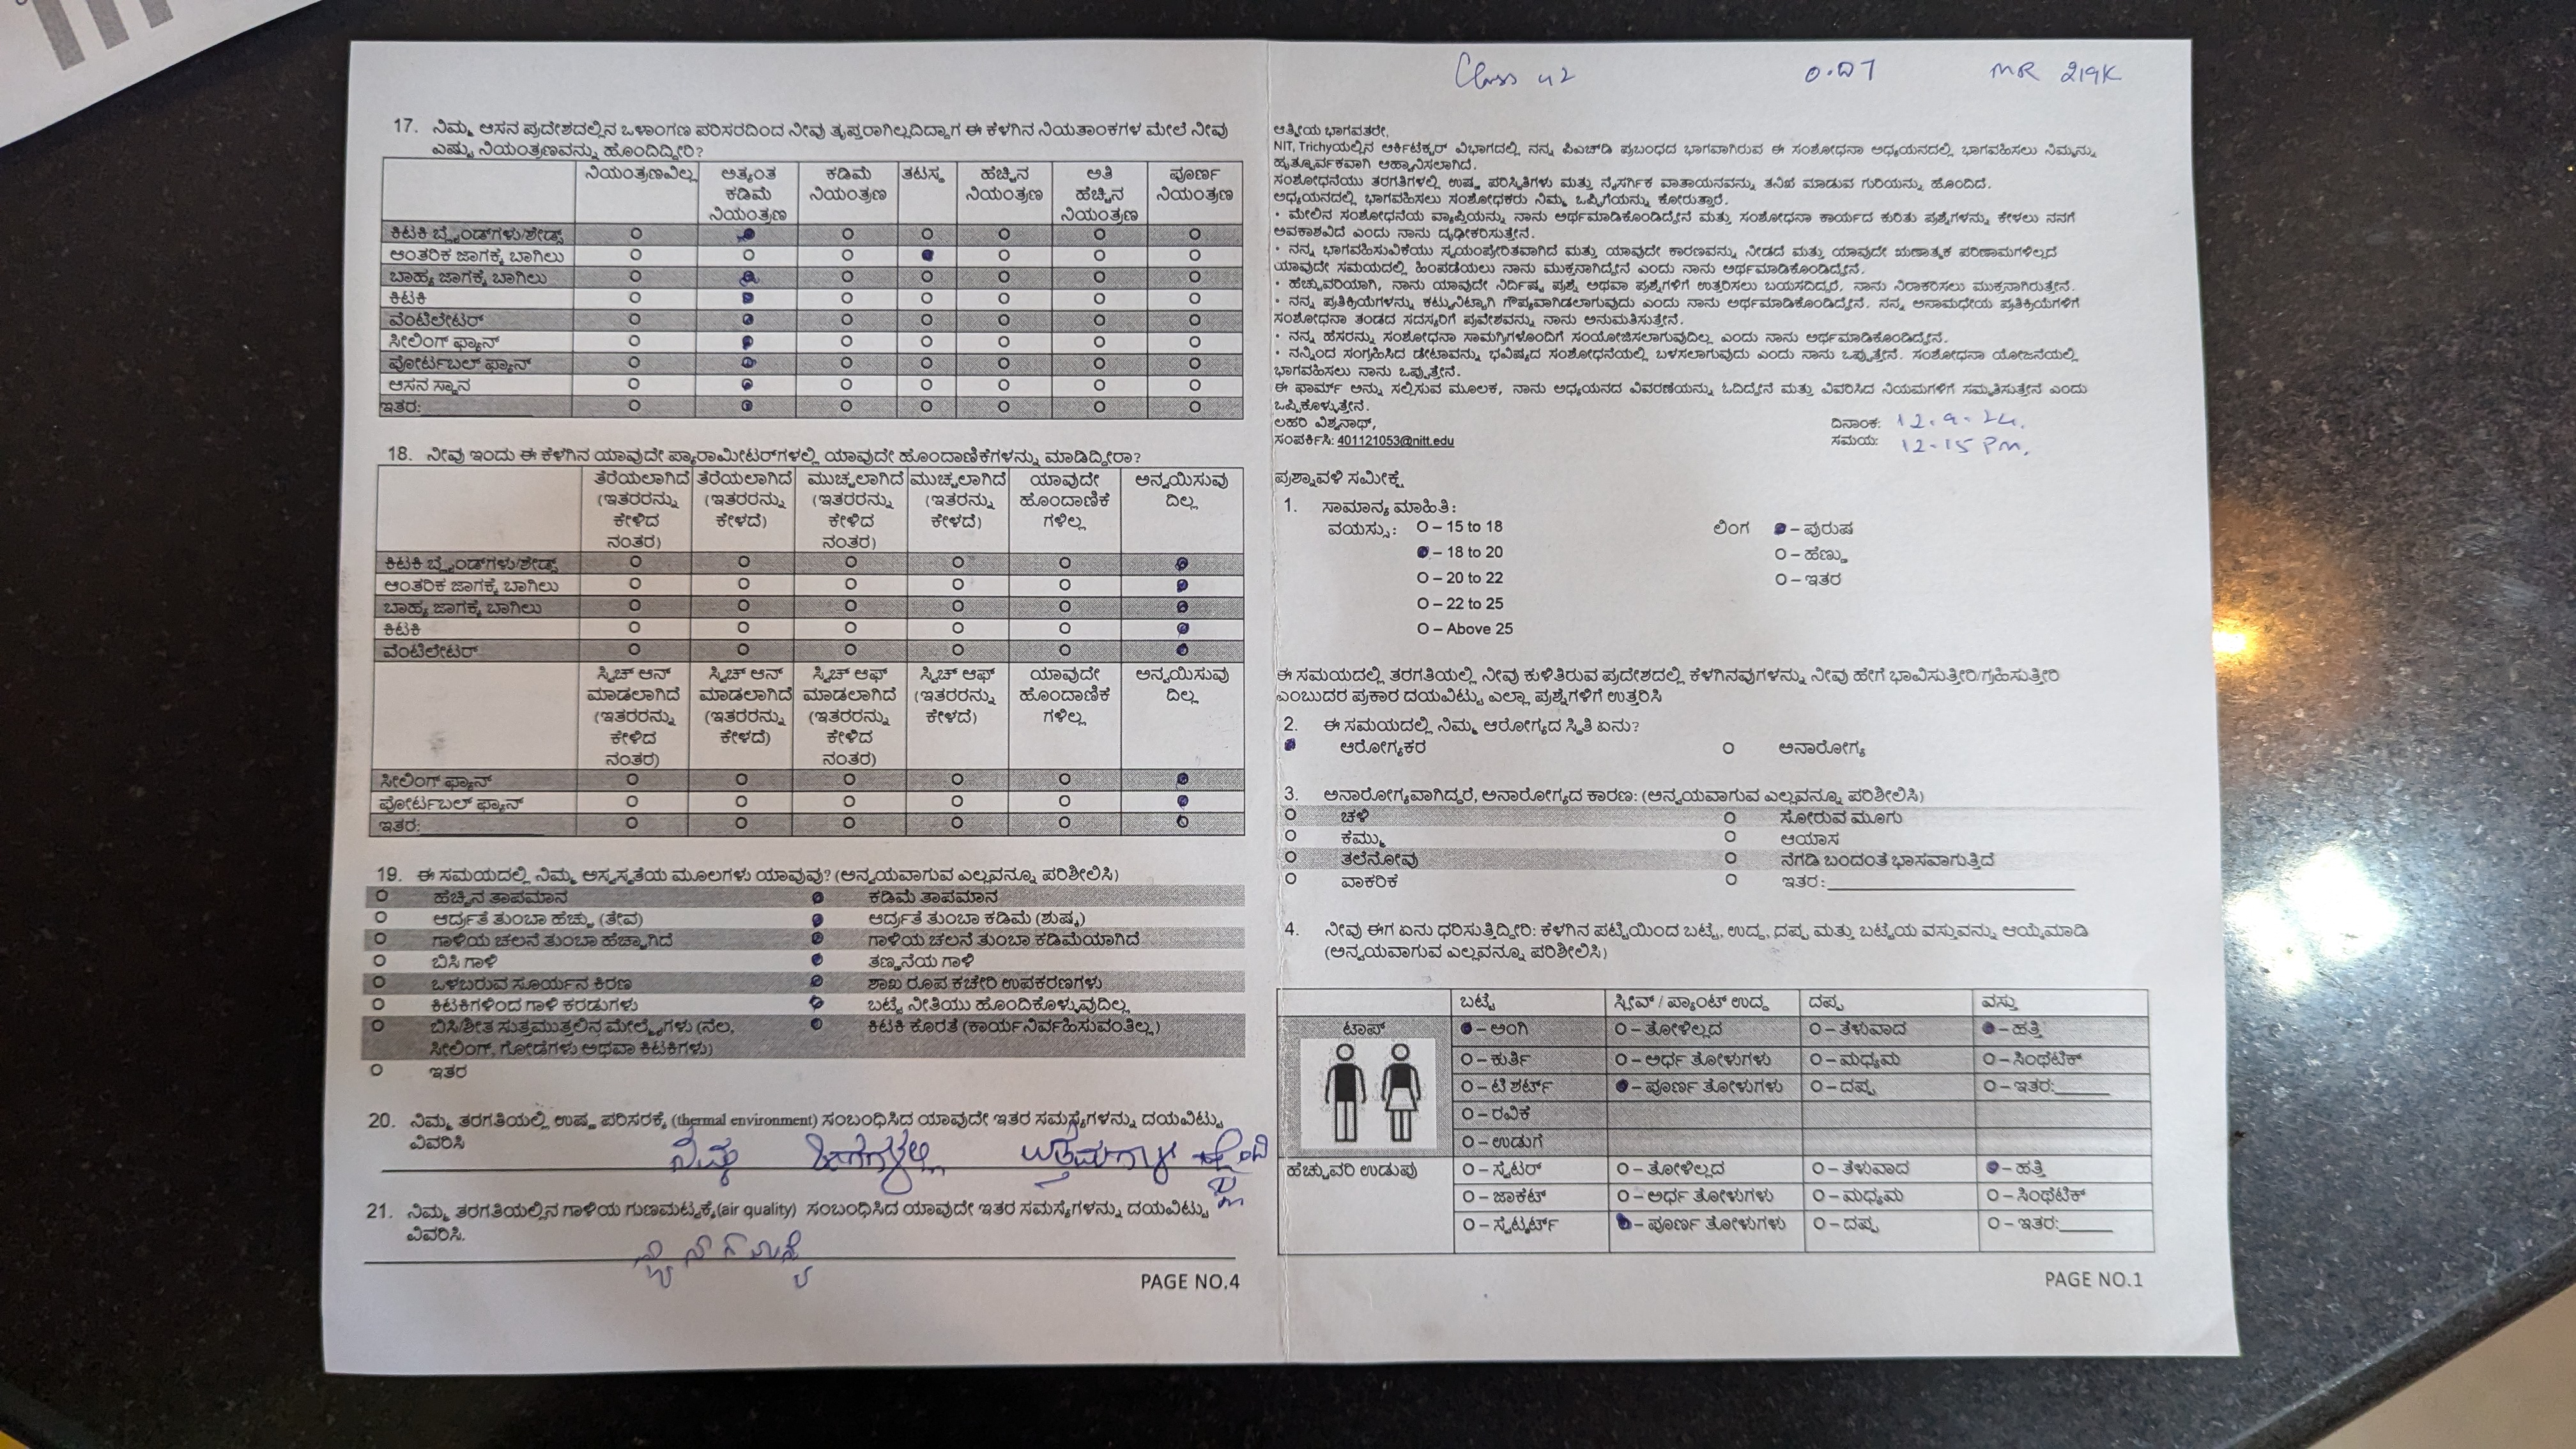 17. ನಿಮ್ಮ ಆಸನ ಪ್ರದೇಶದಲ್ಲಿನ ಒಳಾಂಗಣ ಪರಿಸರದಿಂದ ನೀವು ತೃಪ್ತರಾಗಿಲ್ಲದಿದ್ದಾಗ ಈ ಕೆಳಗಿನ ನಿಯತಾಂಕಗಳ ಮೇಲೆ ನೀವು
ಎಷ್ಟು ನಿಯಂತ್ರಣವನ್ನು ಹೊಂದಿದ್ದೀರಿ?
ನಿಯಂತ್ರಣವಿಲ್ಲ ಅತ್ಯಂತ ಕಡಿಮೆ ನಿಯಂತ್ರಣ ಕಡಿಮೆ ನಿಯಂತ್ರಣ ತಟಸ್ಥ ಹೆಚ್ಚಿನ ನಿಯಂತ್ರಣ ಅತಿ ಹೆಚ್ಚಿನ ನಿಯಂತ್ರಣ ಪೂರ್ಣ ನಿಯಂತ್ರಣ
ಕಿಟಕಿ ಬ್ಲೈಂಡ್‌ಗಳು/ಶೇಡ್ಸ್
ಆಂತರಿಕ ಜಾಗಕ್ಕೆ ಬಾಗಿಲು
ಬಾಹ್ಯ ಜಾಗಕ್ಕೆ ಬಾಗಿಲು
ಕಿಟಕಿ
ವೆಂಟಿಲೇಟರ್
ಸೀಲಿಂಗ್ ಫ್ಯಾನ್
ಪೋರ್ಟಬಲ್ ಫ್ಯಾನ್
ಆಸನ ಸ್ಥಾನ
ಇತರ:
18. ನೀವು ಇಂದು ಈ ಕೆಳಗಿನ ಯಾವುದೇ ಪ್ಯಾರಾಮೀಟರ್‌ಗಳಲ್ಲಿ ಯಾವುದೇ ಹೊಂದಾಣಿಕೆಗಳನ್ನು ಮಾಡಿದ್ದೀರಾ?
ತೆರೆಯಲಾಗಿದೆ (ಇತರರನ್ನು ಕೇಳಿದ ನಂತರ) ತೆರೆಯಲಾಗಿದೆ (ಇತರರನ್ನು ಕೇಳದೆ) ಮುಚ್ಚಲಾಗಿದೆ (ಇತರರನ್ನು ಕೇಳಿದ ನಂತರ) ಮುಚ್ಚಲಾಗಿದೆ (ಇತರರನ್ನು ಕೇಳದೆ) ಯಾವುದೇ ಹೊಂದಾಣಿಕೆ ಗಳಿಲ್ಲ ಅನ್ವಯಿಸುವು ದಿಲ್ಲ
ಕಿಟಕಿ ಬ್ಲೈಂಡ್‌ಗಳು/ಶೇಡ್ಸ್
ಆಂತರಿಕ ಜಾಗಕ್ಕೆ ಬಾಗಿಲು
ಬಾಹ್ಯ ಜಾಗಕ್ಕೆ ಬಾಗಿಲು
ಕಿಟಕಿ
ವೆಂಟಿಲೇಟರ್
ಸ್ವಿಚ್ ಆನ್ ಮಾಡಲಾಗಿದೆ (ಇತರರನ್ನು ಕೇಳಿದ ನಂತರ) ಸ್ವಿಚ್ ಆನ್ ಮಾಡಲಾಗಿದೆ (ಇತರರನ್ನು ಕೇಳದೆ) ಸ್ವಿಚ್ ಆಫ್ ಮಾಡಲಾಗಿದೆ (ಇತರರನ್ನು ಕೇಳಿದ ನಂತರ) ಸ್ವಿಚ್ ಆಫ್ (ಇತರರನ್ನು ಕೇಳದೆ) ಯಾವುದೇ ಹೊಂದಾಣಿಕೆ ಗಳಿಲ್ಲ ಅನ್ವಯಿಸುವು ದಿಲ್ಲ
ಸೀಲಿಂಗ್ ಫ್ಯಾನ್
ಪೋರ್ಟಬಲ್ ಫ್ಯಾನ್
ಇತರ:
19. ಈ ಸಮಯದಲ್ಲಿ ನಿಮ್ಮ ಅಸ್ವಸ್ಥತೆಯ ಮೂಲಗಳು ಯಾವುವು? (ಅನ್ವಯವಾಗುವ ಎಲ್ಲವನ್ನೂ ಪರಿಶೀಲಿಸಿ)
ಹೆಚ್ಚಿನ ತಾಪಮಾನ ಕಡಿಮೆ ತಾಪಮಾನ
ಆರ್ದ್ರತೆ ತುಂಬಾ ಹೆಚ್ಚು (ತೇವ) ಆರ್ದ್ರತೆ ತುಂಬಾ ಕಡಿಮೆ (ಶುಷ್ಕ)
ಗಾಳಿಯ ಚಲನೆ ತುಂಬಾ ಹೆಚ್ಚಾಗಿದೆ ಗಾಳಿಯ ಚಲನೆ ತುಂಬಾ ಕಡಿಮೆಯಾಗಿದೆ
ಬಿಸಿ ಗಾಳಿ ತಣ್ಣನೆಯ ಗಾಳಿ
ಒಳಬರುವ ಸೂರ್ಯನ ಕಿರಣ ಶಾಖ ರೂಪ ಕಚೇರಿ ಉಪಕರಣಗಳು
ಕಿಟಕಿಗಳಿಂದ ಗಾಳಿ ಕರಡುಗಳು ಬಟ್ಟೆ ನೀತಿಯು ಹೊಂದಿಕೊಳ್ಳುವುದಿಲ್ಲ
ಬಿಸಿ/ಶೀತ ಸುತ್ತಮುತ್ತಲಿನ ಮೇಲ್ಮೈಗಳು (ನೆಲ, ಕಿಟಕಿ ಕೊರತೆ (ಕಾರ್ಯನಿರ್ವಹಿಸುವಂತಿಲ್ಲ)
ಸೀಲಿಂಗ್, ಗೋಡೆಗಳು ಅಥವಾ ಕಿಟಕಿಗಳು)
ಇತರ
20. ನಿಮ್ಮ ತರಗತಿಯಲ್ಲಿ ಉಷ್ಣ ಪರಿಸರಕ್ಕೆ (thermal environment) ಸಂಬಂಧಿಸಿದ ಯಾವುದೇ ಇತರ ಸಮಸ್ಯೆಗಳನ್ನು ದಯವಿಟ್ಟು
ವಿವರಿಸಿ
ನಿಮ್ಮ
21. ನಿಮ್ಮ ತರಗತಿಯಲ್ಲಿನ ಗಾಳಿಯ ಗುಣಮಟ್ಟಕ್ಕೆ(air quality) ಸಂಬಂಧಿಸಿದ ಯಾವುದೇ ಇತರ ಸಮಸ್ಯೆಗಳನ್ನು ದಯವಿಟ್ಟು
ವಿವರಿಸಿ.
PAGE NO.4
Class 42 0.07 MR 219K
ಆತ್ಮೀಯ ಭಾಗವತರೇ,
NIT, Trichyಯಲ್ಲಿನ ಆರ್ಕಿಟೆಕ್ಚರ್ ವಿಭಾಗದಲ್ಲಿ ನನ್ನ ಪಿಎಚ್‌ಡಿ ಪ್ರಬಂಧದ ಭಾಗವಾಗಿರುವ ಈ ಸಂಶೋಧನಾ ಅಧ್ಯಯನದಲ್ಲಿ ಭಾಗವಹಿಸಲು ನಿಮ್ಮನ್ನು
ಹೃತ್ಪೂರ್ವಕವಾಗಿ ಆಹ್ವಾನಿಸಲಾಗಿದೆ.
ಸಂಶೋಧನೆಯು ತರಗತಿಗಳಲ್ಲಿ ಉಷ್ಣ ಪರಿಸ್ಥಿತಿಗಳು ಮತ್ತು ನೈಸರ್ಗಿಕ ವಾತಾಯನವನ್ನು ತನಿಖೆ ಮಾಡುವ ಗುರಿಯನ್ನು ಹೊಂದಿದೆ.
ಅಧ್ಯಯನದಲ್ಲಿ ಭಾಗವಹಿಸಲು ಸಂಶೋಧಕರು ನಿಮ್ಮ ಒಪ್ಪಿಗೆಯನ್ನು ಕೋರುತ್ತಾರೆ.
• ಮೇಲಿನ ಸಂಶೋಧನೆಯ ವ್ಯಾಪ್ತಿಯನ್ನು ನಾನು ಅರ್ಥಮಾಡಿಕೊಂಡಿದ್ದೇನೆ ಮತ್ತು ಸಂಶೋಧನಾ ಕಾರ್ಯದ ಕುರಿತು ಪ್ರಶ್ನೆಗಳನ್ನು ಕೇಳಲು ನನಗೆ
ಅವಕಾಶವಿದೆ ಎಂದು ನಾನು ದೃಢೀಕರಿಸುತ್ತೇನೆ.
• ನನ್ನ ಭಾಗವಹಿಸುವಿಕೆಯು ಸ್ವಯಂಪ್ರೇರಿತವಾಗಿದೆ ಮತ್ತು ಯಾವುದೇ ಕಾರಣವನ್ನು ನೀಡದೆ ಮತ್ತು ಯಾವುದೇ ಋಣಾತ್ಮಕ ಪರಿಣಾಮಗಳಿಲ್ಲದೆ
ಯಾವುದೇ ಸಮಯದಲ್ಲಿ ಹಿಂಪಡೆಯಲು ನಾನು ಮುಕ್ತನಾಗಿದ್ದೇನೆ ಎಂದು ನಾನು ಅರ್ಥಮಾಡಿಕೊಂಡಿದ್ದೇನೆ.
• ಹೆಚ್ಚುವರಿಯಾಗಿ, ನಾನು ಯಾವುದೇ ನಿರ್ದಿಷ್ಟ ಪ್ರಶ್ನೆ ಅಥವಾ ಪ್ರಶ್ನೆಗಳಿಗೆ ಉತ್ತರಿಸಲು ಬಯಸದಿದ್ದರೆ, ನಾನು ನಿರಾಕರಿಸಲು ಮುಕ್ತನಾಗಿರುತ್ತೇನೆ.
• ನನ್ನ ಪ್ರತಿಕ್ರಿಯೆಗಳನ್ನು ಕಟ್ಟುನಿಟ್ಟಾಗಿ ಗೌಪ್ಯವಾಗಿಡಲಾಗುವುದು ಎಂದು ನಾನು ಅರ್ಥಮಾಡಿಕೊಂಡಿದ್ದೇನೆ. ನನ್ನ ಅನಾಮಧೇಯ ಪ್ರತಿಕ್ರಿಯೆಗಳಿಗೆ
ಸಂಶೋಧನಾ ತಂಡದ ಸದಸ್ಯರಿಗೆ ಪ್ರವೇಶವನ್ನು ನಾನು ಅನುಮತಿಸುತ್ತೇನೆ.
• ನನ್ನ ಹೆಸರನ್ನು ಸಂಶೋಧನಾ ಸಾಮಗ್ರಿಗಳೊಂದಿಗೆ ಸಂಯೋಜಿಸಲಾಗುವುದಿಲ್ಲ ಎಂದು ನಾನು ಅರ್ಥಮಾಡಿಕೊಂಡಿದ್ದೇನೆ.
• ನನ್ನಿಂದ ಸಂಗ್ರಹಿಸಿದ ಡೇಟಾವನ್ನು ಭವಿಷ್ಯದ ಸಂಶೋಧನೆಯಲ್ಲಿ ಬಳಸಲಾಗುವುದು ಎಂದು ನಾನು ಒಪ್ಪುತ್ತೇನೆ. ಸಂಶೋಧನಾ ಯೋಜನೆಯಲ್ಲಿ
ಭಾಗವಹಿಸಲು ನಾನು ಒಪ್ಪುತ್ತೇನೆ.
ಈ ಫಾರ್ಮ್ ಅನ್ನು ಸಲ್ಲಿಸುವ ಮೂಲಕ, ನಾನು ಅಧ್ಯಯನದ ವಿವರಣೆಯನ್ನು ಓದಿದ್ದೇನೆ ಮತ್ತು ವಿವರಿಸಿದ ನಿಯಮಗಳಿಗೆ ಸಮ್ಮತಿಸುತ್ತೇನೆ ಎಂದು
ಒಪ್ಪಿಕೊಳ್ಳುತ್ತೇನೆ.
ಲಹರಿ ವಿಶ್ವನಾಥ್, ದಿನಾಂಕ: 12.9.24.
ಸಂಪರ್ಕಿಸಿ: 401121053@nitt.edu ಸಮಯ: 12.15 Pm.
ಪ್ರಶ್ನಾವಳಿ ಸಮೀಕ್ಷೆ
1. ಸಾಮಾನ್ಯ ಮಾಹಿತಿ:
ವಯಸ್ಸು: O – 15 to 18 ಲಿಂಗ – ಪುರುಷ
– 18 to 20 O – ಹೆಣ್ಣು
O – 20 to 22 O – ಇತರ
O – 22 to 25
O – Above 25
ಈ ಸಮಯದಲ್ಲಿ ತರಗತಿಯಲ್ಲಿ ನೀವು ಕುಳಿತಿರುವ ಪ್ರದೇಶದಲ್ಲಿ ಕೆಳಗಿನವುಗಳನ್ನು ನೀವು ಹೇಗೆ ಭಾವಿಸುತ್ತೀರಿ/ಗ್ರಹಿಸುತ್ತೀರಿ
ಎಂಬುದರ ಪ್ರಕಾರ ದಯವಿಟ್ಟು ಎಲ್ಲಾ ಪ್ರಶ್ನೆಗಳಿಗೆ ಉತ್ತರಿಸಿ
2. ಈ ಸಮಯದಲ್ಲಿ ನಿಮ್ಮ ಆರೋಗ್ಯದ ಸ್ಥಿತಿ ಏನು?
ಆರೋಗ್ಯಕರ ಅನಾರೋಗ್ಯ
3. ಅನಾರೋಗ್ಯವಾಗಿದ್ದರೆ, ಅನಾರೋಗ್ಯದ ಕಾರಣ: (ಅನ್ವಯವಾಗುವ ಎಲ್ಲವನ್ನೂ ಪರಿಶೀಲಿಸಿ)
ಚಳಿ ಸೋರುವ ಮೂಗು
ಕೆಮ್ಮು ಆಯಾಸ
ತಲೆನೋವು ನೆಗಡಿ ಬಂದಂತೆ ಭಾಸವಾಗುತ್ತಿದೆ
ವಾಕರಿಕೆ ಇತರ:
4. ನೀವು ಈಗ ಏನು ಧರಿಸುತ್ತಿದ್ದೀರಿ: ಕೆಳಗಿನ ಪಟ್ಟಿಯಿಂದ ಬಟ್ಟೆ, ಉದ್ದ, ದಪ್ಪ ಮತ್ತು ಬಟ್ಟೆಯ ವಸ್ತುವನ್ನು ಆಯ್ಕೆಮಾಡಿ
(ಅನ್ವಯವಾಗುವ ಎಲ್ಲವನ್ನೂ ಪರಿಶೀಲಿಸಿ)
ಬಟ್ಟೆ ಸ್ಲೀವ್ / ಪ್ಯಾಂಟ್ ಉದ್ದ ದಪ್ಪ ವಸ್ತು
ಟಾಪ್ – ಅಂಗಿ O – ತೋಳಿಲ್ಲದ O – ತೆಳುವಾದ – ಹತ್ತಿ
O – ಕುರ್ತಿ O – ಅರ್ಧ ತೋಳುಗಳು O – ಮಧ್ಯಮ O – ಸಿಂಥೆಟಿಕ್
O – ಟಿ ಶರ್ಟ್ – ಪೂರ್ಣ ತೋಳುಗಳು O – ದಪ್ಪ O – ಇತರ:
O – ರವಿಕೆ
O – ಉಡುಗೆ
ಹೆಚ್ಚುವರಿ ಉಡುಪು O – ಸ್ವೆಟರ್ O – ತೋಳಿಲ್ಲದ O – ತೆಳುವಾದ – ಹತ್ತಿ
O – ಜಾಕೆಟ್ O – ಅರ್ಧ ತೋಳುಗಳು O – ಮಧ್ಯಮ O – ಸಿಂಥೆಟಿಕ್
O – ಸ್ವೆಟ್ಶರ್ಟ್ – ಪೂರ್ಣ ತೋಳುಗಳು O – ದಪ್ಪ O – ಇತರ:
PAGE NO.1